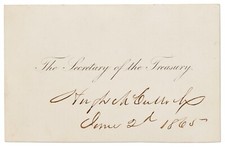 The Secretary of the Treasury.
Hugh McCulloch
June 2d 1865